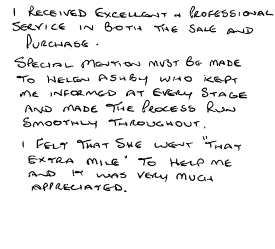 I RECEIVED EXCELLENT + PROFESSIONAL
SERVICE IN BOTH THE SALE AND
PURCHASE.
SPECIAL MENTION MUST BE MADE
TO HELEN ASHBY WHO KEPT
ME INFORMED AT EVERY STAGE
AND MADE THE PROCESS RUN
SMOOTHLY THROUGHOUT.
I FELT THAT SHE WENT "THAT
EXTRA MILE" TO HELP ME
AND IT WAS VERY MUCH
APPRECIATED.